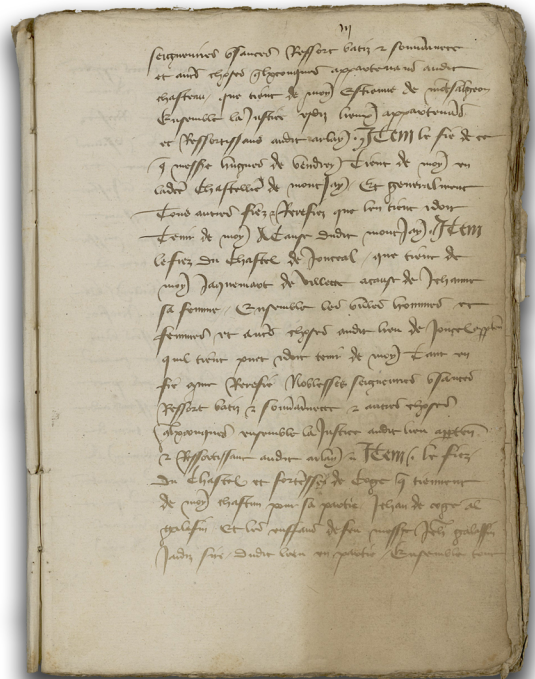 iij
seigneuries usances Ressort batiz et souv
et aut's choses q'lxconques appartenans audit
chasteau que tient de moy Estienne de
Ensemble la Justice desdis lieux appartenans
et Ressortissans audit arlay. ITEm le fie de ce
q messire hugues de vendrey Tient de moy en
ladce Chastellie de montJay Et generalment
Tous autres fiez Rerefiez que len tient et doit
Tenir de moy A Cause dudit montJay. ITEm
le fiez du Chastel de que tient de
moy Jaquemart de villette a cause de Jehanne
sa femme Ensemble les villes hommes et
femmes et aut's choses audit lieu de
quil tient puet et doit tenir de moy Tant en
fie que Rerefie Noblesses seigneuries usances
Ressort batiz et et autres choses
q'lxconques ensemble la Justice audit lieu apparten
et Ressortissant audit arlay et ITEm le fiez
du Chastel et forteresse de Coge q tiennent
de moy chascun pour sa partie Jehan de coge al
galafin Et les enffans de feu messire Jeh galaffin
Jadiz sire dudit lieu en partie Ensemble tout